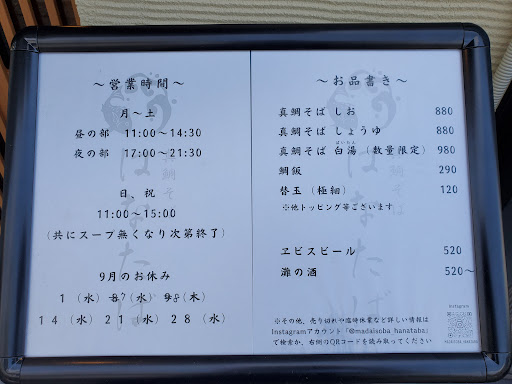 ～営業時間～
月～土
昼の部 11:00～14:30
夜の部 17:00～21:30
日、祝
11:00～15:00
(共にスープ無くなり次第終了)
9月のお休み
14(水) 21(水) 28(水)
～お品書き～
真鯛そば しお 880
真鯛そば しょうゆ 880
真鯛そば 白湯 (数量限定) 980
鯛飯 290
替玉 (極細) 120
※他トッピング等ございます
ヱビスビール 520
灘の酒 520～
Instagram
※その他、売り切れや臨時休業など詳しい情報は
Instagramアカウント「@madaisoba_hanataba」
で検索か、右側のQRコードを読み取ってください